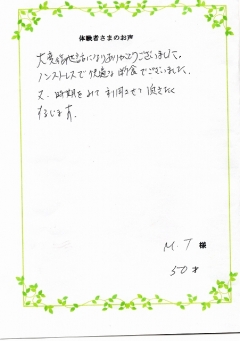 体験者さまのお声
大変御世話になりありがとうございました。
ノンストレスで快適な断食でございました。
又、時期をみて利用させて頂きたく
存じます。
M.T 様
50才